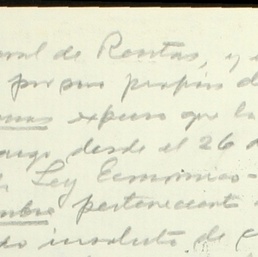 ral de Rentas, y
por sus propios d
mas expuso que la
argo desde el 26 d
Ley Economico-
mbre perteneciente
do insoluto de c